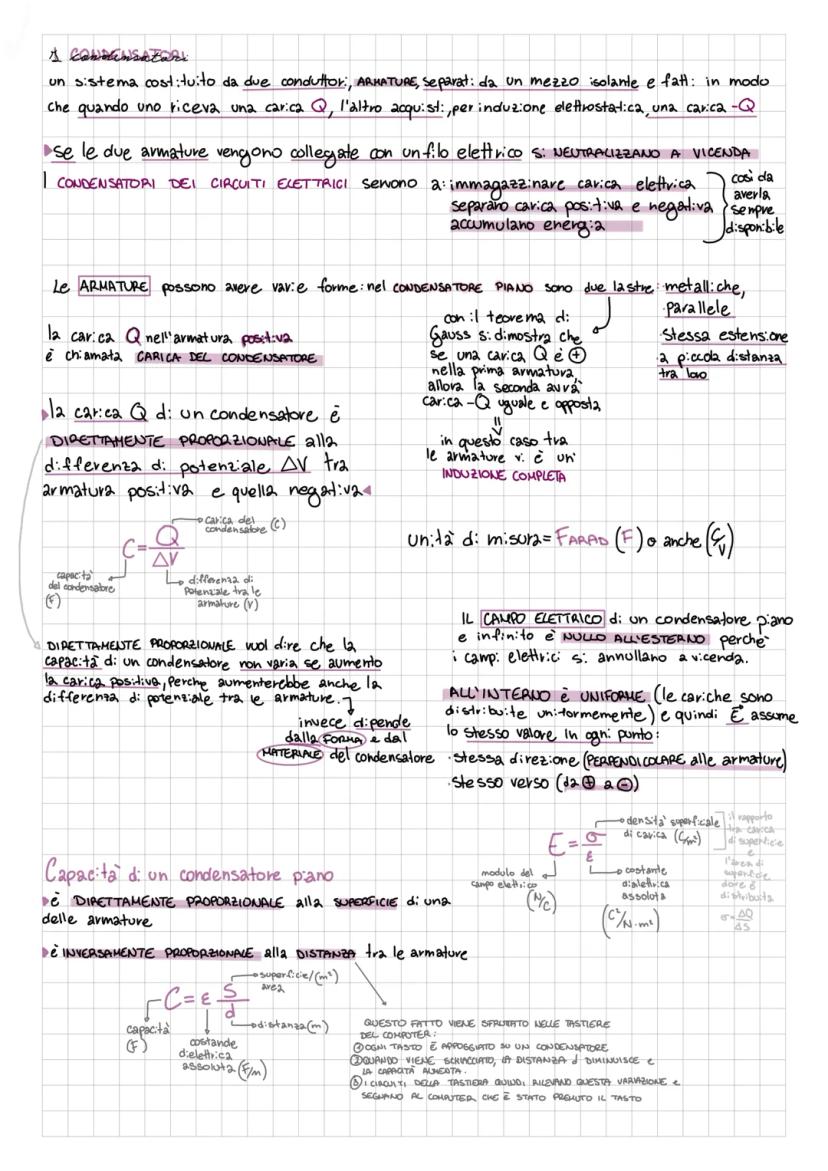 I condensatori
CONDENSATORI
un sistema costituito da due conduttori, ARMATURE, separati da un mezzo isolante e fatti in modo
che quando uno riceva una carica Q, l'altro acquisti, per induzione elettrostatica, una carica -Q
se le due armature vengono collegate con un filo elettrico si NEUTRALIZZANO A VICENDA
I CONDENSATORI DEI CIRCUITI ELETTRICI servono a: immagazzinare carica elettrica
separano carica positiva e negativa
accumulano energia
così da
averla
sempre
disponibile
Le ARMATURE possono avere varie forme: nel CONDENSATORE PIANO sono due lastre: metalliche,
parallele
stessa estensione
a piccola distanza
tra loro
la carica Q nell'armatura positiva
è chiamata CARICA DEL CONDENSATORE
con il teorema di
Gauss si dimostra che
se una carica Q è ⊕
nella prima armatura,
allora la seconda avrà
carica -Q uguale e opposta
⇓
in questo caso tra
le armature vi è un'
INDUZIONE COMPLETA
la carica Q di un condensatore è
DIRETTAMENTE PROPORZIONALE alla
differenza di potenziale ΔV tra
armatura positiva e quella negativa
C = Q/ΔV
carica del
condensatore (C)
capacità
del condensatore
(F)
differenza di
potenziale tra le
armature (V)
unità di misura = FARAD (F) o anche (C/V)
DIRETTAMENTE PROPORZIONALE vuol dire che la
capacità di un condensatore non varia se aumento
la carica positiva, perche aumenterebbe anche la
differenza di potenziale tra le armature.
invece dipende
dalla FORMA e dal
MATERIALE del condensatore
IL CAMPO ELETTRICO di un condensatore piano
e infinito è NULLO ALL'ESTERNO perchè
i campi elettrici si annullano a vicenda.
ALL'INTERNO è UNIFORME (le cariche sono
distribuite uniformemente) e quindi E assume
lo stesso valore in ogni punto:
· stessa direzione (PERPENDICOLARE alle armature)
· stesso verso (da ⊕ a ⊖)
E = σ/ε
densità superficiale
di carica (C/m²)
il rapporto
tra carica
di superficie
e
l'area di
superficie
dove è
distribuita
σ = ΔQ/ΔS
modulo del
campo elettrico
(N/C)
costante
dielettrica
assoluta
(C²/N·m²)
Capacità di un condensatore piano
è DIRETTAMENTE PROPORZIONALE alla SUPERFICIE di una
delle armature
è INVERSAMENTE PROPORZIONALE alla DISTANZA tra le armature
C = ε S/d
superficie/(m²)
area
distanza (m)
capacità
(F)
costande
dielettrica
assoluta (F/m)
QUESTO FATTO VIENE SFRUTATO NELLE TASTIERE
DEL COMPUTER:
① OGNI TASTO È APPOGGIATO SU UN CONDENSATORE
② QUANDO VIENE SCHIACCIATO, LA DISTANZA d DIMINUISCE e
LA CAPACITÀ AUMENTA.
③ I CIRCUITI DELLA TASTIERA QUINDI RILEVANO QUESTA VARIAZIONE e
SEGNANO AL COMPUTER CHE È STATO PREMUTO IL TASTO